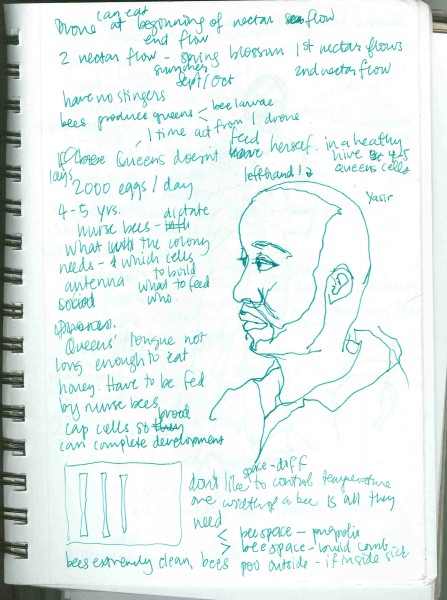 can eat
Drone at beginning of nectar flow
end flow
2 nectar flow - spring blossom 1st nectar flows
summer
sept/oct 2nd nectar flow
have no stingers
bees produce queens < bee larvae
from 1 drone
1 time act
Queens doesnt feed herself. in a healthy
hive 4-5
queens cells
lays
2000 eggs / day
lefthand!
Yasir
4-5 yrs.
nurse bees - dictate
what the colony
needs - & which cells
to build
antenna what to feed
social who.
Queens' tongue not
long enough to eat
honey. Have to be fed
by nurse bees
cap cells so brood
can complete development
space - diff
don't like to control temperature
one width of a bee is all they
need
< bee space - propolis
> bee space - build comb
bees extremely clean, bees poo outside - if inside sick